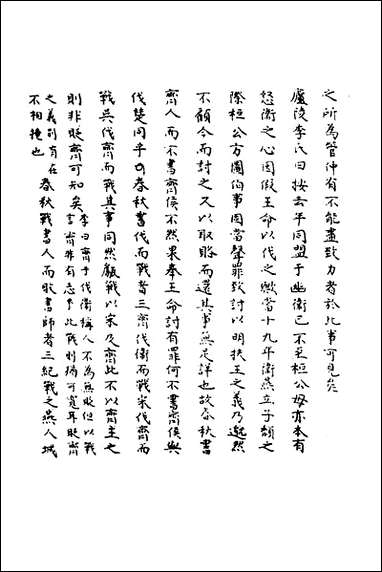 之所為管仲有不能盡致力者於此事可見矣
廬陵李氏曰按去年同盟于幽衛已不至桓公毋亦本有
怒衛之心因假王命以伐之歟當十九年衛燕立子頹之
際桓公方圖伯事固當聲罪致討以明扶王之義乃邈然
不顧今而討之又以取賂而還其事無足詳也故春秋書
齊人而不書齊侯不然果奉王命討有罪何不書齊侯與
伐楚同乎可春秋書伐而戰者三齊伐衛而戰宋伐齊而
戰吳伐齊而戰其事同然甗戰以宋及齊此不以齊主之
則非貶齊可知矣李曰齊于伐衛稱人不為無貶但以戰
言齊非有志乎此戰則猶可寬耳貶齊
之義則有在
不相掩也春秋戰書人而敗書師者三紀戰之燕人城